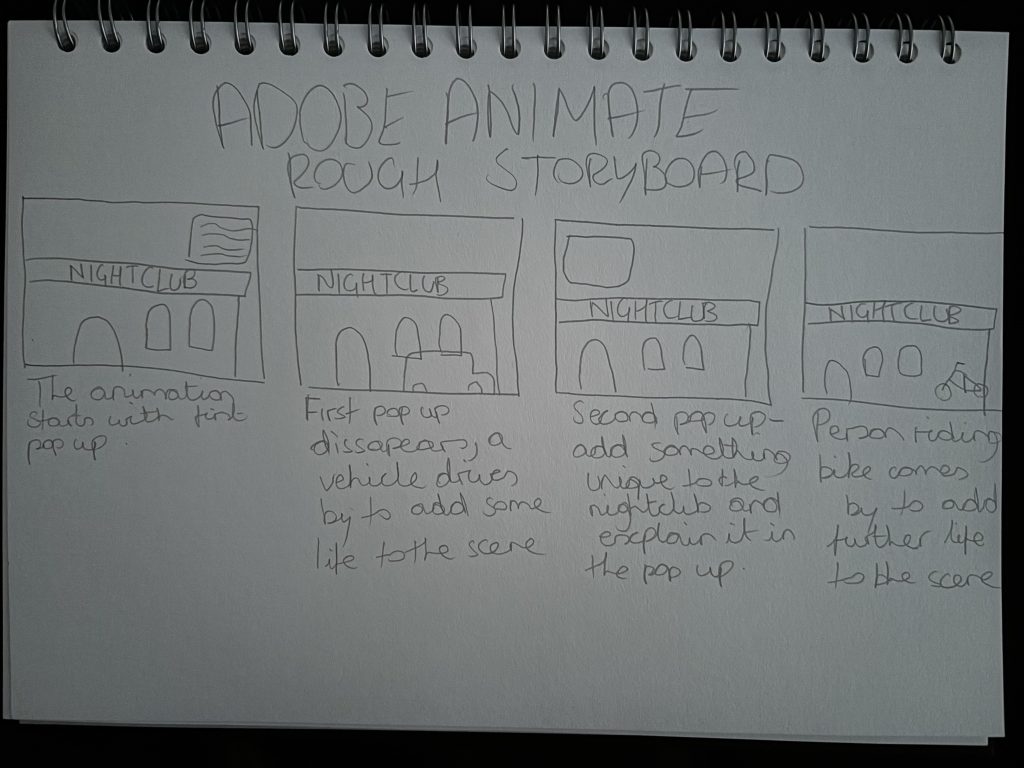 ADOBE ANIMATE
ROUGH STORYBOARD
NIGHTCLUB
The animation
starts with first
pop up.
NIGHTCLUB
First pop up
dissapears, a
vehicle drives
by to add some
life to the scene
NIGHTCLUB
Second pop up-
add something
unique to the
nightclub and
explain it in
the pop up.
NIGHTCLUB
Person riding
bike comes
by to add
further life
to the scene